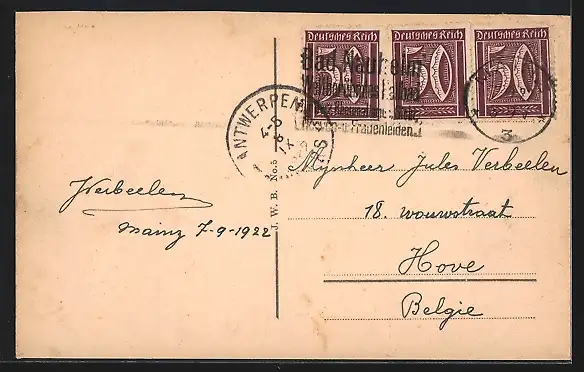 Deutsches Reich Deutsches Reich Deutsches Reich
50 50 50
Bad Nauheim
Frauenleiden
3
ANTWERPEN
4-5
IX
J.W.B. No.5
Mynheer Jules Verbeelen
18. wouwstraat
Hove
Belgie
JVerbeelen
Mainz 7-9-1922